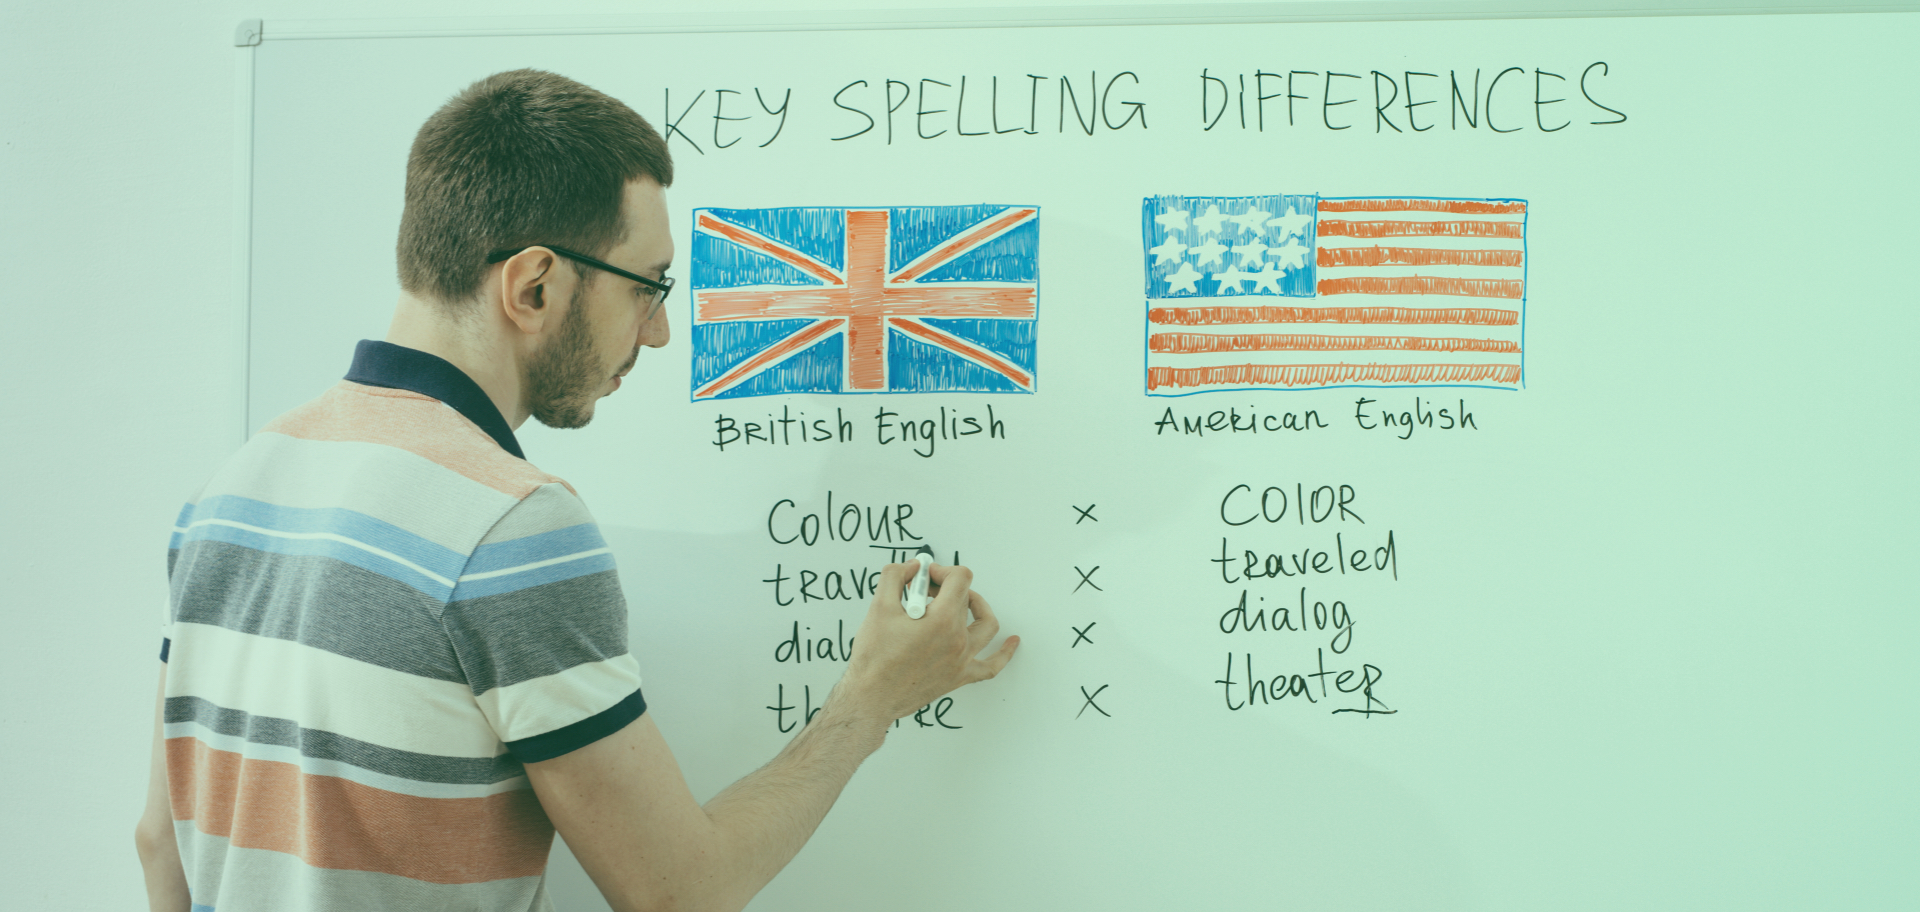 KEY SPELLING DIFFERENCES
British English
American English
Colour x COLOR
x traveled
x dialog
x theater